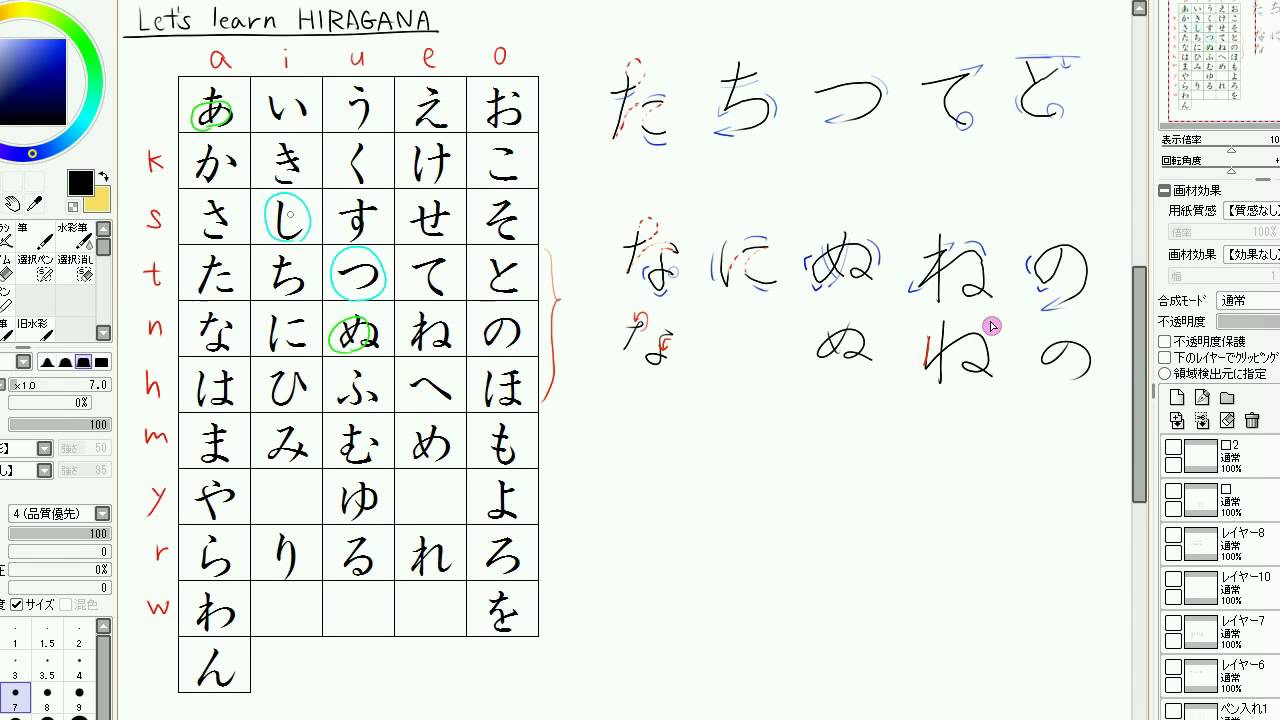 Let's learn HIRAGANA
a i u e o
あ い う え お
k か き く け こ
s さ し す せ そ
t た ち つ て と
n な に ぬ ね の
h は ひ ふ へ ほ
m ま み む め も
y や ゆ よ
r ら り る れ ろ
w わ を
ん
た ち つ て と
な に ぬ ね の
な ぬ ね の
筆 水彩筆
選択ペン 選択消し
筆 旧水彩
x1.0 7.0
0%
100
強さ 50
強さ 95
4(品質優先)
100
0
0%
0
サイズ 混色
1 1.5 2
3 3.5 4
7 8 9
表示倍率 10
回転角度
画材効果
用紙質感 【質感なし
倍率 100%
画材効果 【効果なし】
幅 1
合成モード 通常
不透明度
不透明度保護
下のレイヤーでクリッピング
領域検出元に指定
口2
通常
100%
口
通常
100%
レイヤー8
通常
100%
レイヤー10
通常
100%
レイヤー7
通常
100%
レイヤー6
通常
100%
ペン入れ1